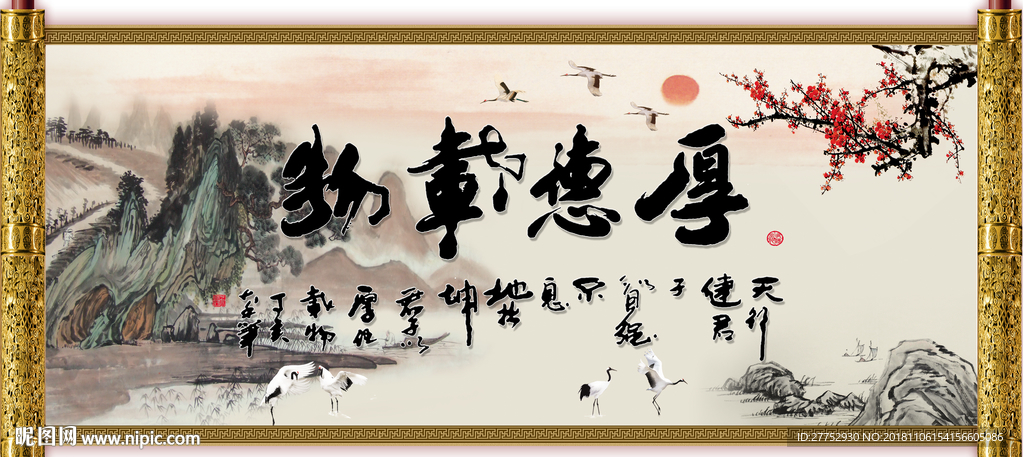 厚德載物
天行
健君
子
以自强
不
息
地势
坤
君子以
厚德
载物
丁亥
昵图网 www.nipic.com
ID:27752930 NO:20181106154156605086